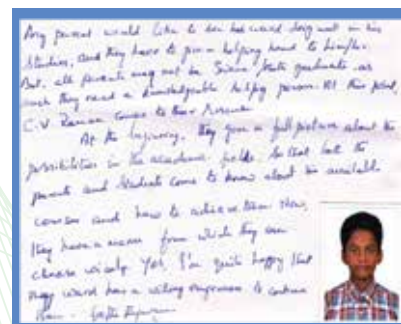 Any parent would like to see his ward doing well in his
studies, and they have to give a helping hand to him/her.
But, all parents may not be Science / Maths graduate as
such they need a knowledgeable helping person. At this point,
C.V. Raman comes to their rescue.
At the beginning, they give a full picture about the
possibilities in the academic fields. So that both the
parents and students come to know about the available
courses and how to achieve them. Now,
they have a menu from which they can
choose wisely. Yes, I'm quite happy that
my ward has a willing to continue